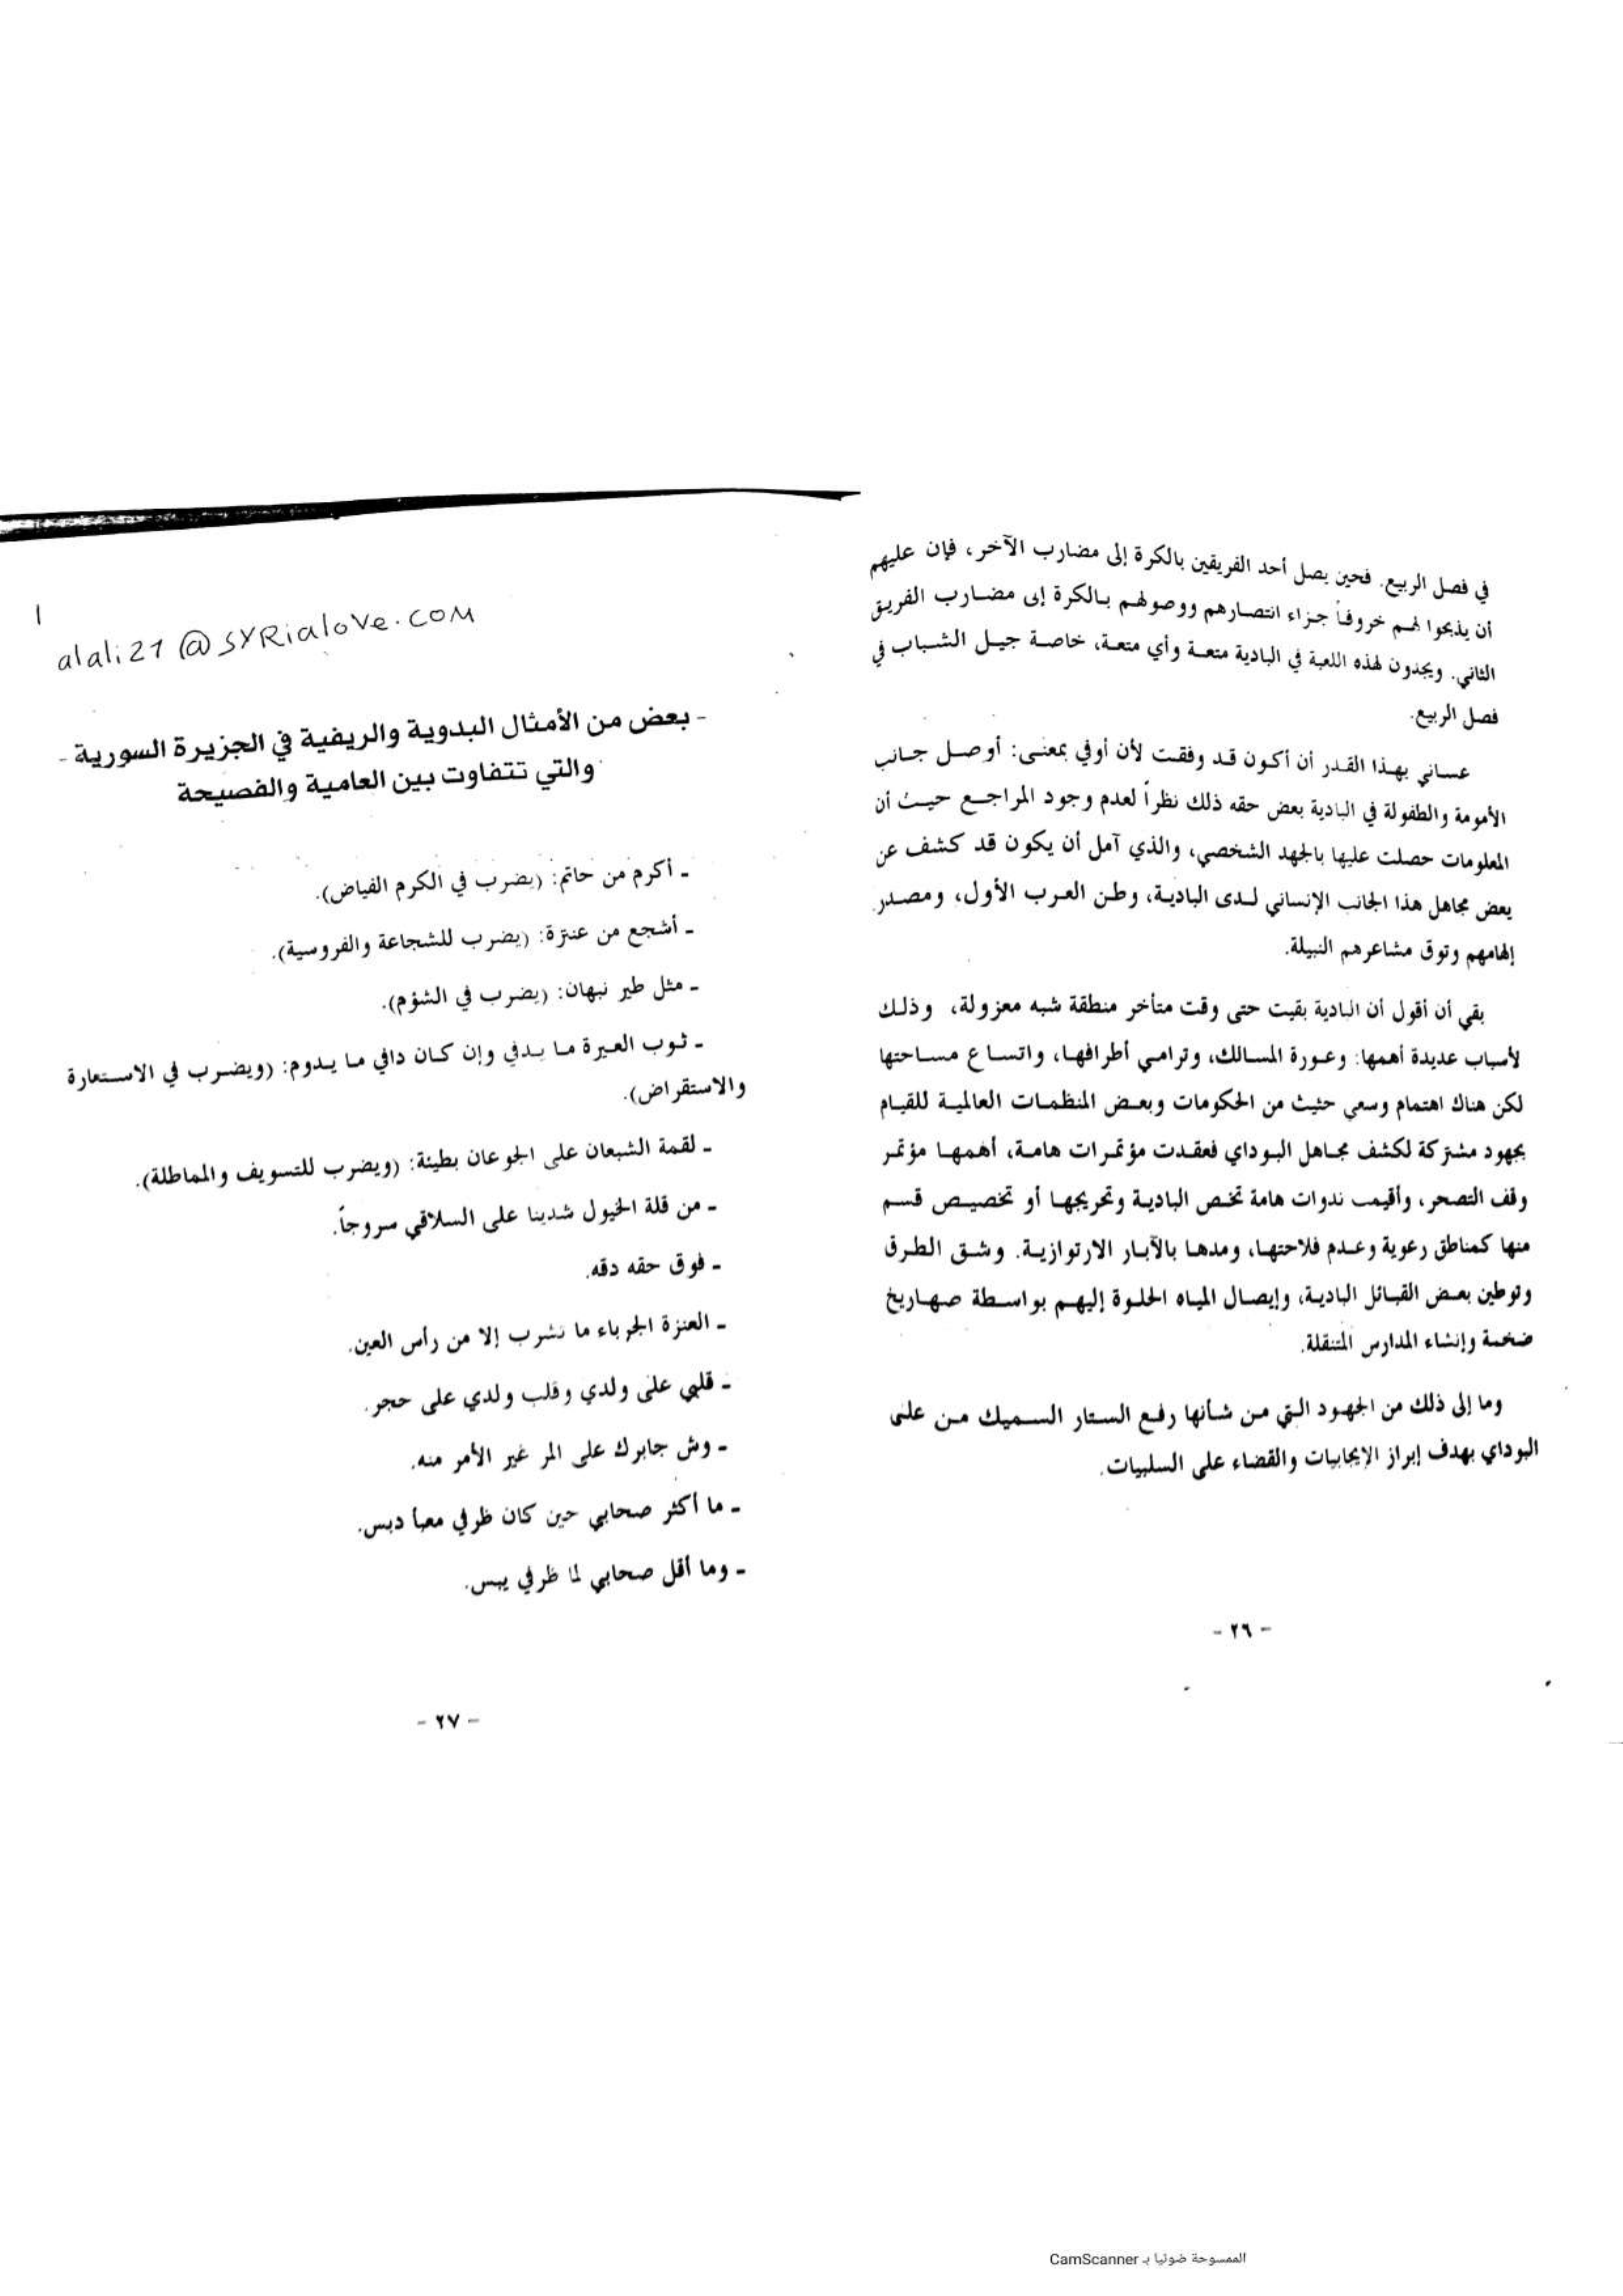 في فصل الربيع. فحين يصل أحد الفريقين بالكرة إلى مضارب الآخر، فإن عليهم
أن يذبحوا لهم خروفاً جزاء انتصارهم ووصولهم بالكرة إلى مضارب الفريق
الثاني. ويجدون لهذه اللعبة في البادية متعة وأي متعة، خاصة جيل الشباب في
فصل الربيع.
عساني بهذا القدر أن أكون قد وفقت لأن أوفي بمعنى: أوصل جانب
الأمومة والطفولة في البادية بعض حقه ذلك نظراً لعدم وجود المراجع حيث أن
المعلومات حصلت عليها بالجهد الشخصي، والذي آمل أن يكون قد كشف عن
بعض مجاهل هذا الجانب الإنساني لدى البادية، وطن العرب الأول، ومصدر
إلهامهم وتوق مشاعرهم النبيلة.
بقي أن أقول أن البادية بقيت حتى وقت متأخر منطقة شبه معزولة، وذلك
لأسباب عديدة أهمها: وعورة المسالك، وترامي أطرافها، واتساع مساحتها
لكن هناك اهتمام وسعي حثيث من الحكومات وبعض المنظمات العالمية للقيام
بجهود مشتركة لكشف مجاهل البوداي فعقدت مؤتمرات هامة، أهمها مؤتمر
وقف التصحر، وأقيمت ندوات هامة تخص البادية وتحريجها أو تخصيص قسم
منها كمناطق رعوية وعدم فلاحتها، ومدها بالآبار الارتوازية. وشق الطرق
وتوطين بعض القبائل البادية، وإيصال المياه الحلوة إليهم بواسطة صهاريخ
ضخمة وإنشاء المدارس المتنقلة.
وما إلى ذلك من الجهود التي من شأنها رفع الستار السميك من على
البوداي بهدف إبراز الإيجابيات والقضاء على السلبيات.
- ٢٦ -
١
alali21@SYRialove.com
- بعض من الأمثال البدوية والريفية في الجزيرة السورية -
والتي تتفاوت بين العامية والفصيحة
ـ أكرم من حاتم: (يضرب في الكرم الفياض).
ـ أشجع من عنترة: (يضرب للشجاعة والفروسية).
ـ مثل طير نبهان: (يضرب في الشؤم).
ـ ثوب العيرة ما يدفي وإن كان دافي ما يدوم: (ويضرب في الاستعارة
والاستقراض).
ـ لقمة الشبعان على الجوعان بطيئة: (ويضرب للتسويف والمماطلة).
ـ من قلة الخيول شدينا على السلاقي سروجاً.
ـ فوق حقه دقه.
ـ العنزة الجرباء ما تشرب إلا من رأس العين.
ـ قلبي على ولدي وقلب ولدي على حجر.
ـ وش جابرك على المر غير الأمر منه.
ـ ما أكثر صحابي حين كان ظرفي معبأ دبس.
ـ وما أقل صحابي لما ظرفي يبس.
- ٢٧ -
الممسوحة ضوئيا بـ CamScanner